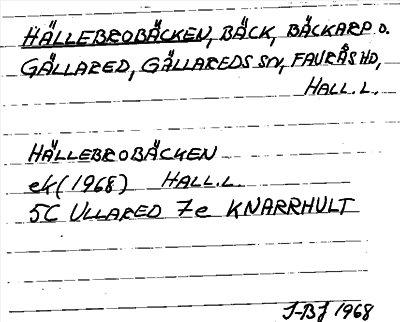 HÄLLEBROBÄCKEN, BÄCK, BÄCKARP O.
GÄLLARED, GÄLLAREDS SN, FAURÅS HD,
HALL. L.
HÄLLEBROBÄCKEN
ek (1968) HALL. L.
5C ULLARED 7e KNARRHULT
J-BJ 1968